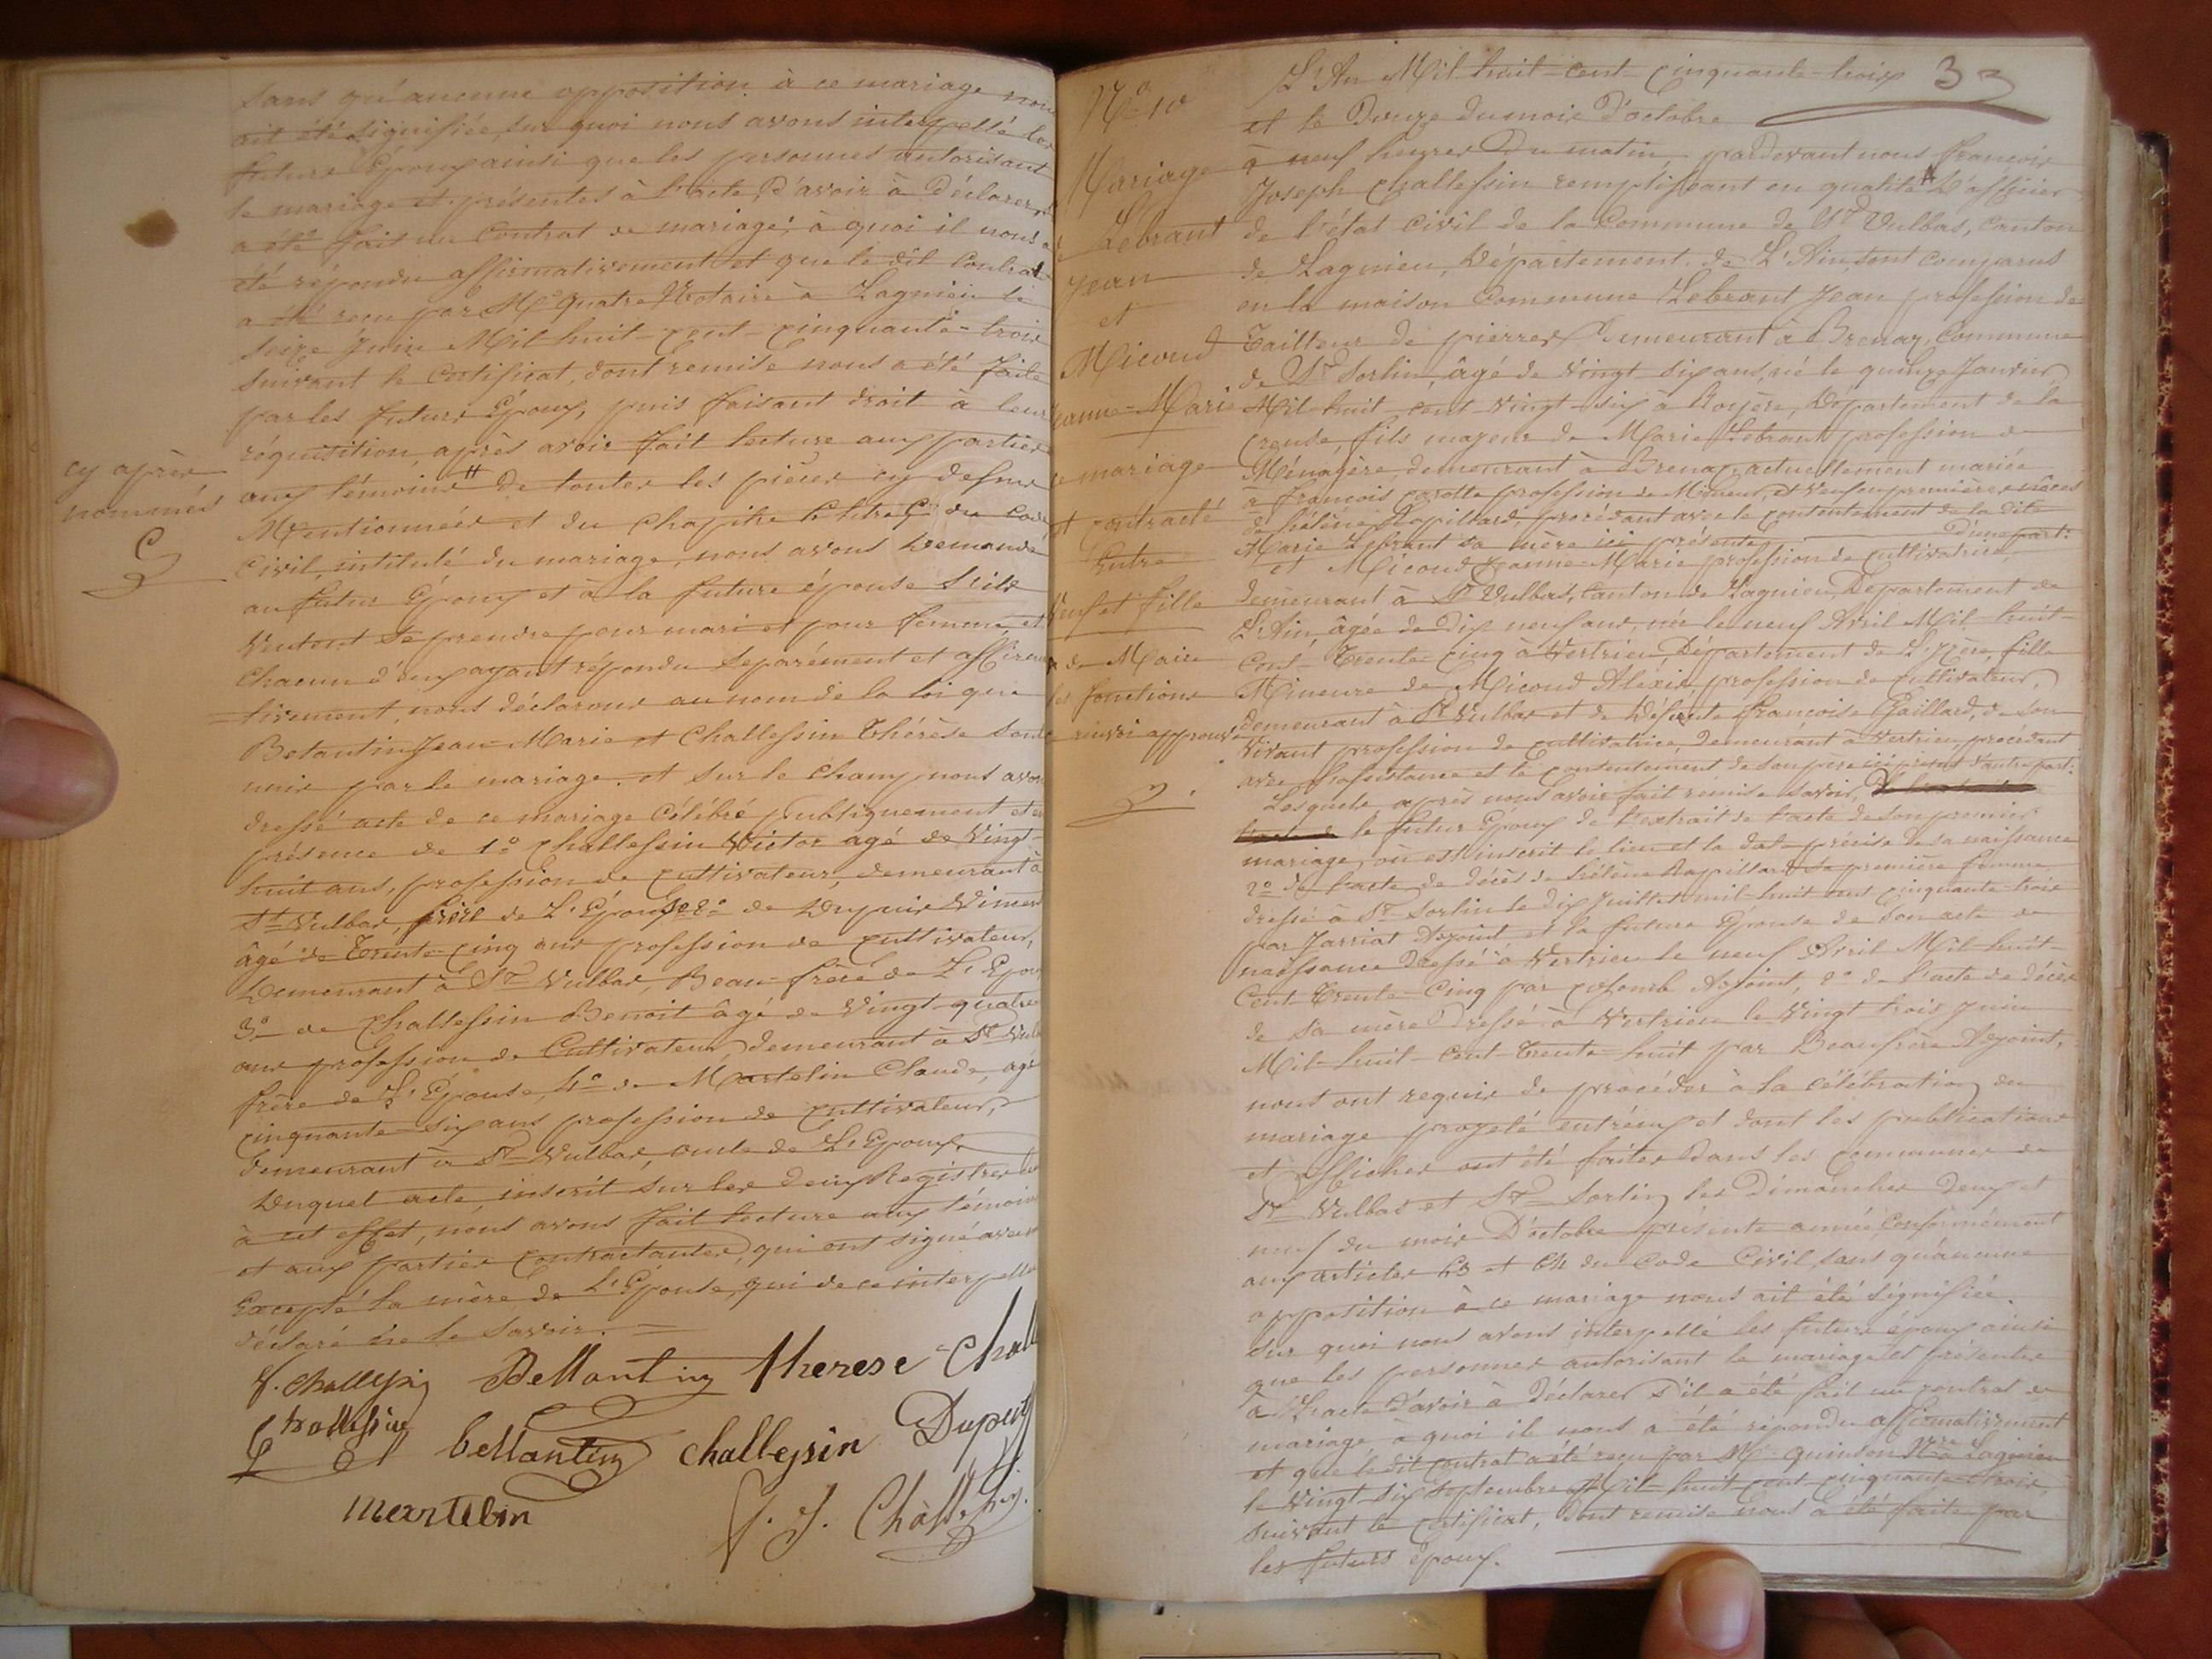 sans qu'aucune opposition à ce mariage nous
ait été signifiée, sur quoi nous avons interpellé les
futurs Époux ainsi que les personnes autorisant
le mariage et présentes à l'acte, d'avoir à déclarer s'il
a été fait un contrat de mariage, à quoi il nous a
été répondu affirmativement et que le dit contrat
a été reçu par Me Quatre Notaire à Lagnieu le
seize Juin Mil-huit-cent-cinquante-trois
suivant le certificat, dont remise nous a été faite
par les futurs Époux, puis faisant droit à leur
réquisition, après avoir fait lecture aux parties
cy après
nommés
aux témoins # de toutes les pièces cy dessus
Mentionnées et du chapitre 6 titre 5 du code
civil, intitulé du mariage, nous avons demandé
au futur Époux et à la future épouse s'ils
veulent se prendre pour mari et pour femme, et
chacun d'eux ayant répondu séparément et affirma-
-tivement, nous déclarons au nom de la loi que
Betantin Jean-Marie et Challessin Thérèse sont
unis par le mariage. et sur le champ nous avons
dressé acte de ce mariage célébré publiquement et en
présence de 1° Challessin Victor âgé de vingt-
huit ans, profession de cultivateur, demeurant à
St Vulbas, frère de L'Épouse 2° de Dupuis
âgé de Trente-cinq ans profession de cultivateur,
demeurant à St Vulbas, Beau-frère de L'Époux
3° de Challessin Benoit âgé de vingt-quatre
ans profession de Cultivateur, demeurant à St Vulbas
frère de L'Épouse, 4° de Martelin Claude, âgé
cinquante-six ans profession de cultivateur,
demeurant à St Vulbas, oncle de L'Époux.
Duquel acte, inscrit sur les deux Registres
à cet effet, nous avons fait lecture aux témoins
et aux parties contractantes, qui ont signé avec
Excepté la mère de L'Épouse, qui de ce interpellée
déclaré ne le savoir.
Bellantin therese Chall
bellantin challessin Dupuis
Martelin f. J. Challessin
33
N° 10
Mariage
de
Lebrant
Jean
et
Micoud
Jeanne-Marie
Ce mariage
est contracté
Entre
Veuf et fille
de Maire
les fonctions
approuvé
L'An Mil-huit-cent-cinquante-trois
et le Douze du mois D'octobre
à neuf heures Du matin, pardevant nous françois
Joseph Challessin remplissant en qualité # d'officier
de l'état civil de la Commune de St Vulbas, canton
de Lagnieu, Département de L'Ain, sont comparus
en la maison Commune Lebrant Jean profession de
Tailleur de pierres Demeurant à Brenaz, Commune
de St Sorlin, âgé de vingt-six ans, né le quinze Janvier
Mil-huit-cent-vingt-six à Royère, Département de la
Creuse, fils majeur de Marie Lebrant profession de
Ménagère, demeurant à Brenaz, actuellement mariée
à françois profession de Mineur, et veuf en premières nôces
de hélène Rapillard, procédant avec le consentement de la dite
Marie Lebrant sa mère ici présente D'une part:
et Micoud Jeanne-Marie profession de cultivatrice,
demeurant à St Vulbas, Canton de Lagnieu, Département de
L'Ain, âgée de Dix neuf ans, née le neuf Avril Mil-huit-
Cent-Trente-cinq à Vertrieu, Département de L'Izère, fille
Mineure de Micoud Alexis, profession de cultivateur,
demeurant à St Vulbas et de Défunte françoise Gaillard, de son
vivant profession de cultivatrice, demeurant à Vertrieu, procédant
avec l'assistance et le consentement de son père ici présent d'autre part:
Lesquels après nous avoir fait remise savoir,
le futur Époux de l'extrait de l'acte de son premier
mariage, où est inscrit le lieu et la date précise de sa naissance
2° de l'acte de décès de hélène Rapillard sa première femme
dressé à St Sorlin le dix Juillet mil-huit-cent cinquante-trois
par Jarriat Adjoint et la future Épouse de son acte de
naissance Dressé à Vertrieu le neuf Avril Mil-huit-
Cent-Trente-Cinq par Colomb Adjoint, 2° de l'acte de décès
de sa mère Dressé à Vertrieu le vingt trois Juin
Mil-huit-cent-Trente-huit par Beaufrère Adjoint,
nous ont requis de procéder à la célébration du
mariage projeté entr'eux et dont les publications
et affiches ont été faites dans les communes de
St Vulbas et St Sorlin les Dimanches deux et
neuf du mois D'octobre présente année, conformément
aux articles 63 et 64 du Code Civil, sans qu'aucune
opposition à ce mariage nous ait été signifiée,
sur quoi nous avons interpellé les futurs époux ainsi
que les personnes autorisant le mariage et présentes
à L'acte d'avoir à déclarer s'il a été fait un contrat de
mariage à quoi il nous a été répondu affirmativement
et que le dit contrat a été reçu par Me Quinson Nre à Lagnieu
le vingt-six Septembre Mil-huit-cent-cinquante-trois,
suivant le certificat, dont remise nous a été faite par
les futurs époux.